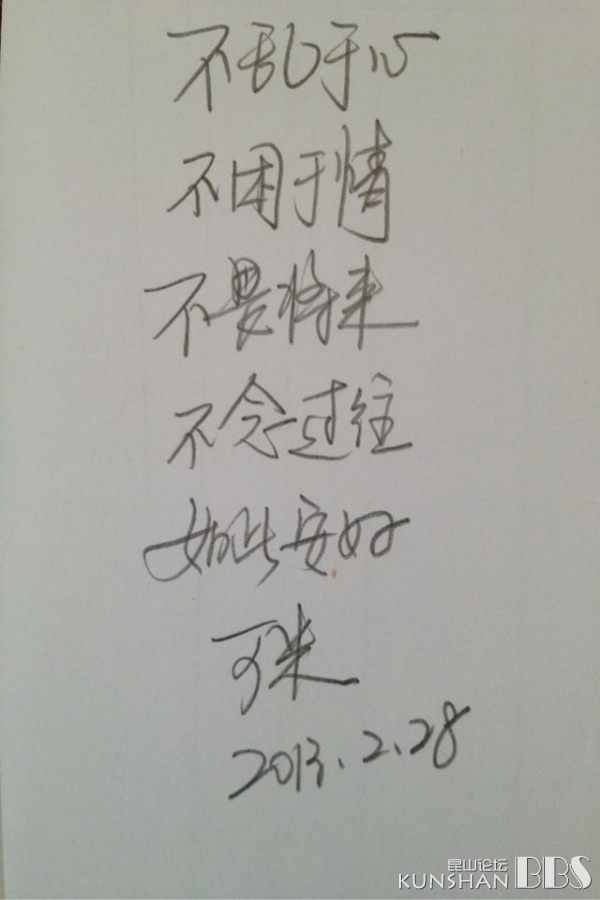 不乱于心
不困于情
不畏将来
不念过往
如此安好
可米
2013.2.28
昆山论坛
KUNSHAN BBS